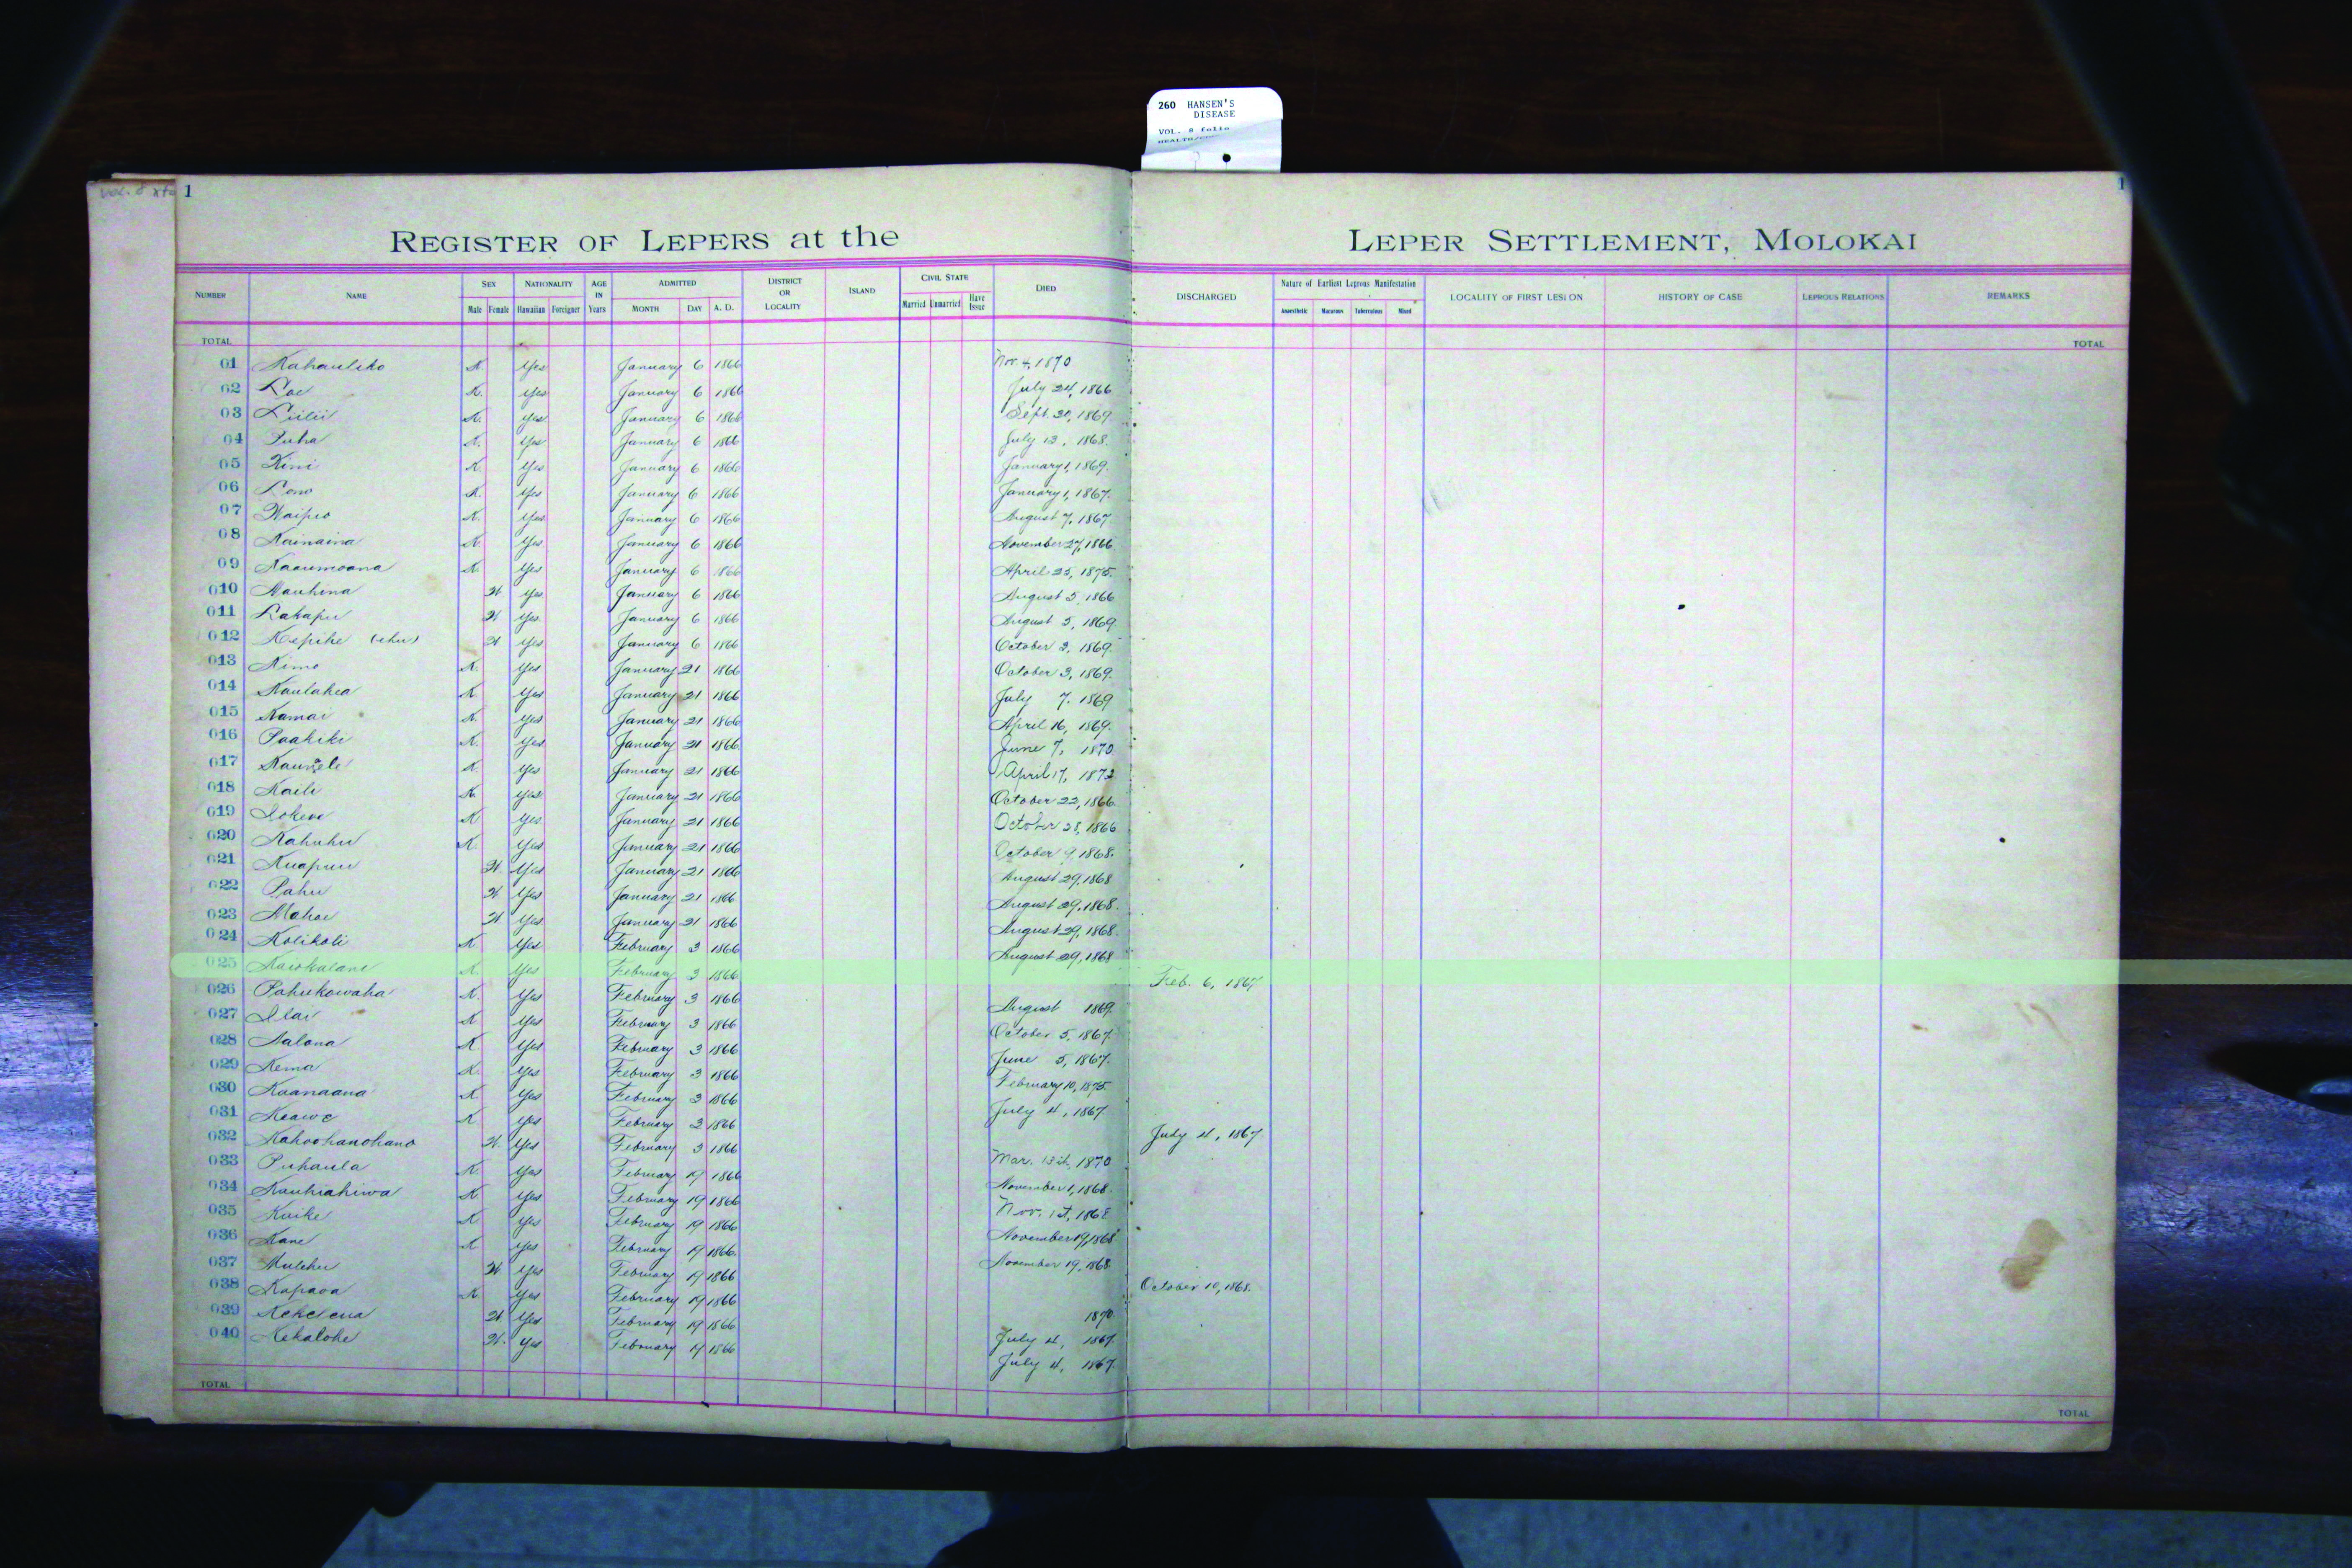 260 HANSEN'S
DISEASE
VOL. 8 folio
vol. 8
1
1
REGISTER OF LEPERS at the LEPER SETTLEMENT, MOLOKAI
NUMBER NAME SEX NATIONALITY AGE IN Years ADMITTED DISTRICT OR LOCALITY ISLAND CIVIL STATE DIED DISCHARGED Nature of Earliest Leprous Manifestation LOCALITY OF FIRST LESION HISTORY OF CASE LEPROUS RELATIONS REMARKS
Male Female Hawaiian Foreigner MONTH DAY A. D. Married Unmarried Have Issue Anaesthetic Macurous Tuberculous Mixed
TOTAL TOTAL
01 Kahauliko K. Yes January 6 1866 Nov. 4, 1870
02 Loe K. Yes January 6 1866 July 24, 1866
03 Liilii K. Yes January 6 1866 Sept. 20, 1869
04 Puha K. Yes January 6 1866 July 13, 1868
05 Kini K. Yes January 6 1866 January 1, 1869.
06 Lono K. Yes January 6 1866 January 1, 1867.
07 Waipio K. Yes January 6 1866 August 7, 1867
08 Kainaina K. Yes January 6 1866 November 27, 1866
09 Kaaumoana K. Yes January 6 1866 April 25, 1875.
010 Mauhina W Yes January 6 1866 August 5, 1866
011 Lakapu W Yes January 6 1866 August 5, 1869
012 Kepihe (ehu) W Yes January 6 1866 October 3, 1869.
013 Kimo K. Yes January 21 1866 October 3, 1869.
014 Kaulahea K Yes January 21 1866 July 7. 1869
015 Kamai K. Yes January 21 1866 April 16, 1869.
016 Paakiki K. Yes January 21 1866 June 7, 1870
017 Kauwele K. Yes January 21 1866 April 17, 1872
018 Kaili K. Yes January 21 1866 October 22, 1866
019 Iokewe K Yes January 21 1866 October 28, 1866
020 Kahuhu K. Yes January 21 1866 October 9, 1868.
021 Kuapuu W. Yes January 21 1866 August 29, 1868
022 Pahu W Yes January 21 1866 August 29, 1868.
023 Mahoe W Yes January 21 1866 August 29, 1868.
024 Kolikoli K Yes February 3 1866 August 29, 1868
025 Kaiokalani K. Yes February 3 1866 Feb. 6, 1867
026 Pahukowaha K. Yes February 3 1866 August 1869
027 Ilai K Yes February 3 1866 October 5, 1867
028 Aalona K Yes February 3 1866 June 5, 1867.
029 Kema K. Yes February 3 1866 February 10, 1875
030 Kaanaana K Yes February 3 1866 July 4, 1867
031 Keawe K. Yes February 3 1866 July 4, 1867
032 Kahoohanohano W. Yes February 3 1866 Mar. 13th, 1870
033 Puhaula K Yes February 19 1866 November 1, 1868.
034 Kauhiahiwa K Yes February 19 1866 Nov. 1st, 1868
035 Kuike K Yes February 19 1866 November 19, 1868
036 Kane K Yes February 19 1866 November 19, 1868
037 Mulehu W. Yes February 19 1866 October 10, 1868.
038 Kapaoa K. Yes February 19 1866 1870
039 Kekelena W. Yes February 19 1866 July 4, 1867.
040 Kekalohe W. Yes February 19 1866 July 4, 1867.
TOTAL TOTAL